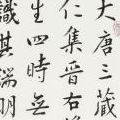 大唐三藏
仁集晉右
生四時無
識其端明